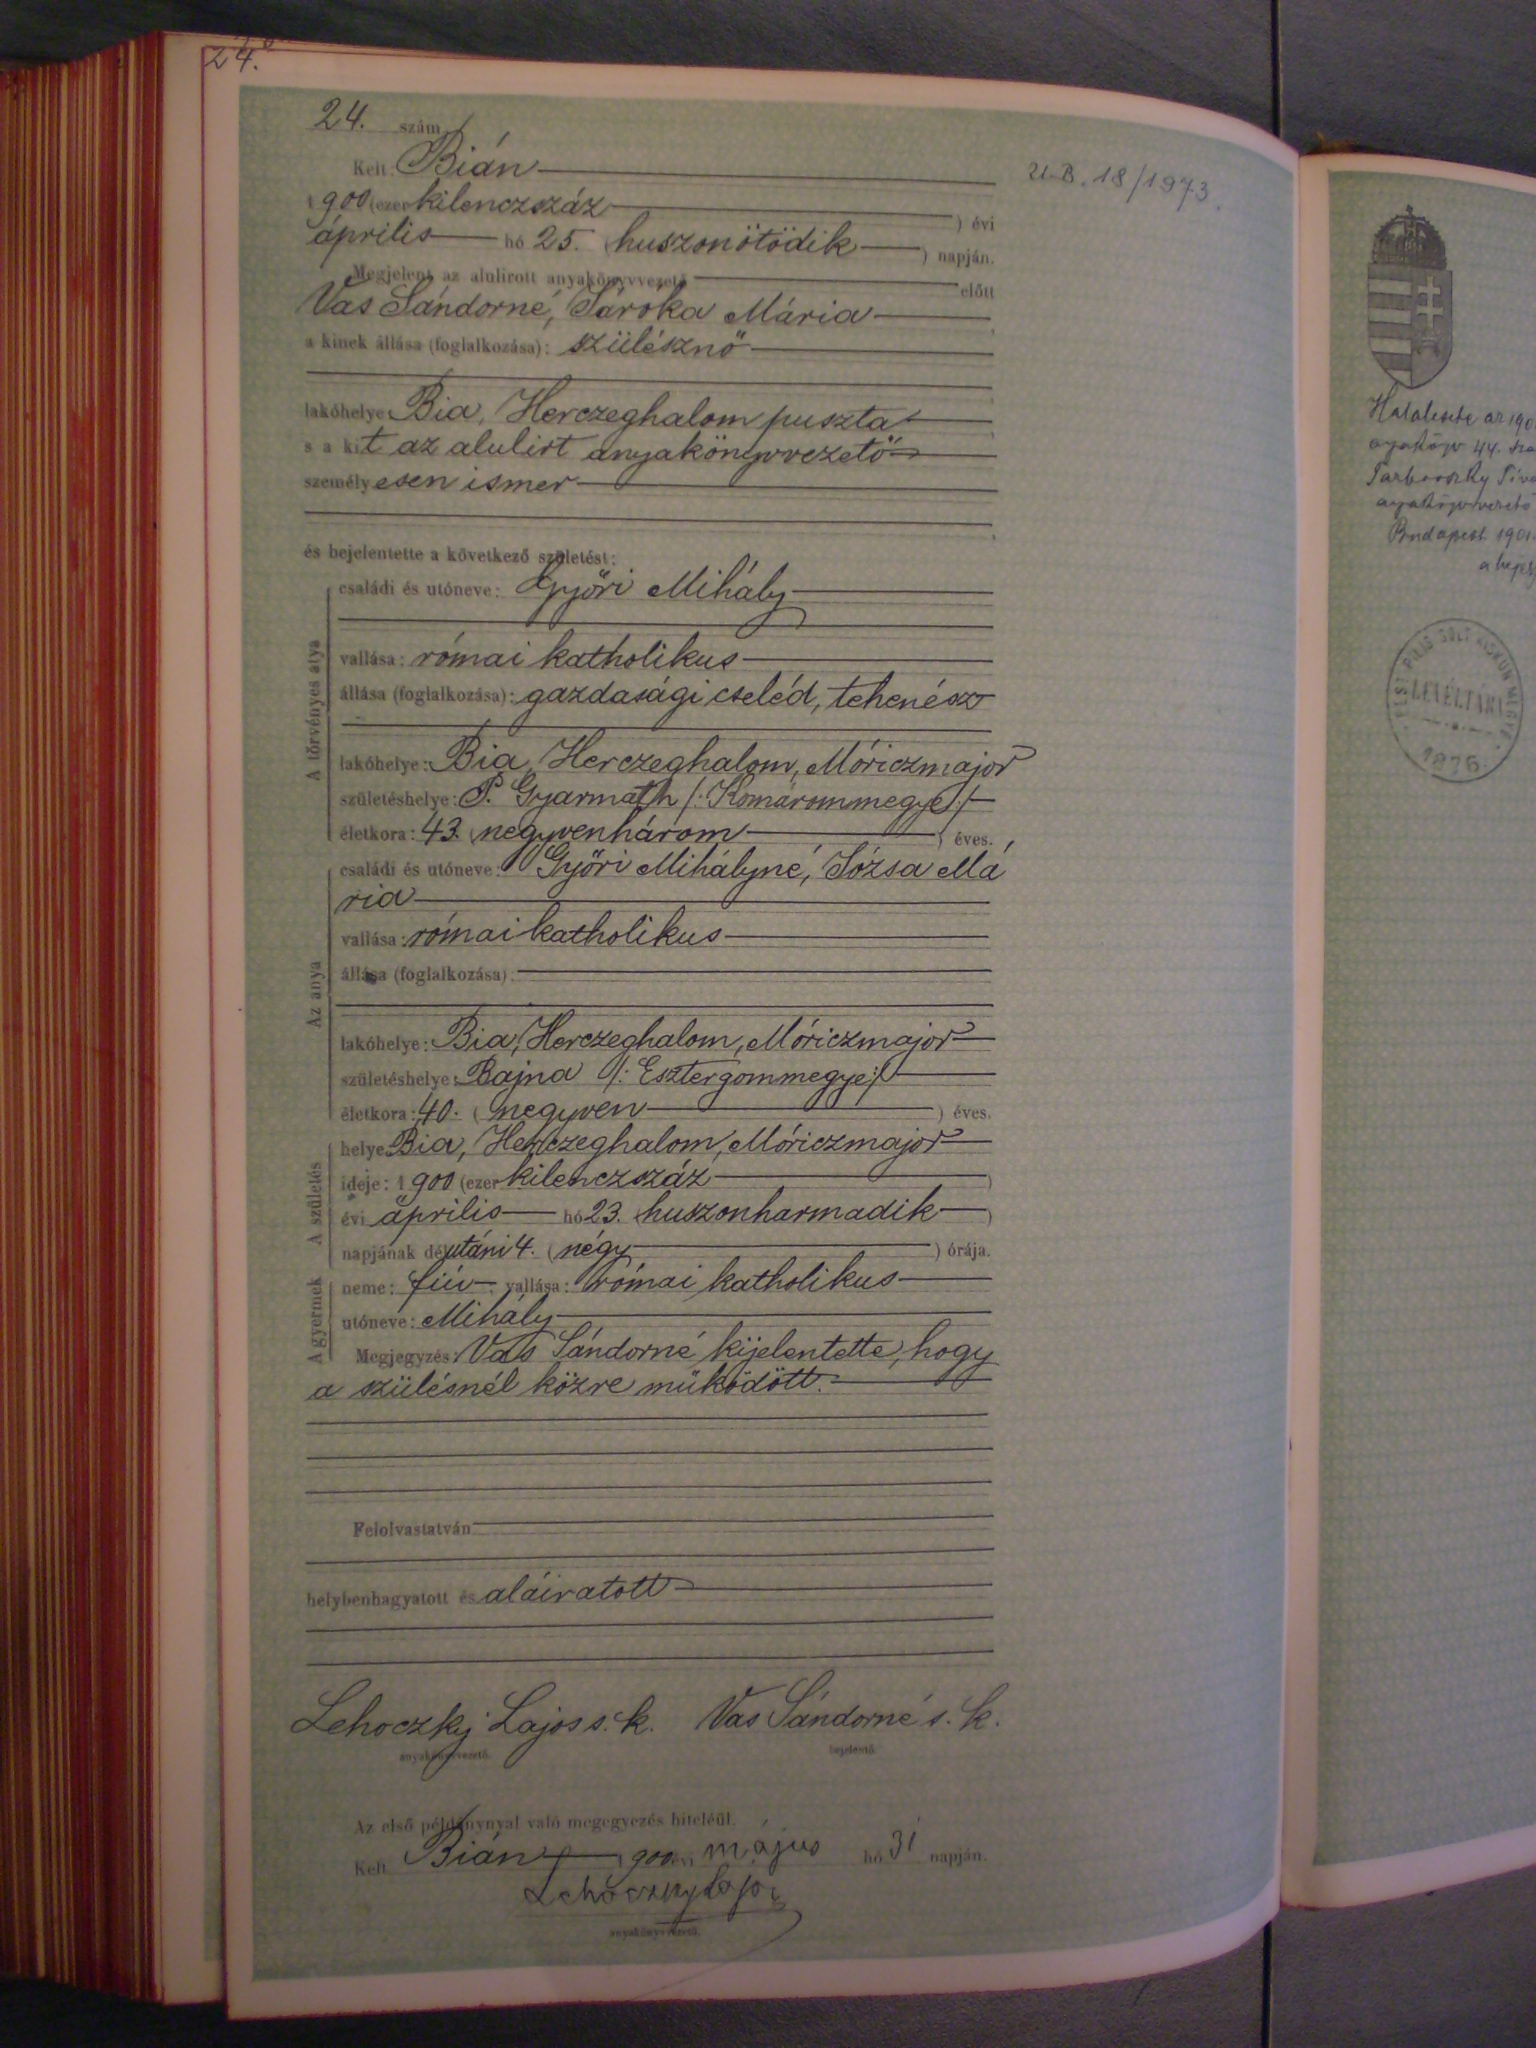 24.
24. szám
Kelt: Bián
1900 (ezer kilenczszáz) évi
április hó 25. (huszonötödik) napján.
Megjelent az alulirott anyakönyvvezető előtt
Vas Sándorné, Sároka Mária
a kinek állása (foglalkozása): szülésznő
lakóhelye: Bia, Herczeghalom puszta
s a kit az alulirt anyakönyvvezető
személyesen ismer
és bejelentette a következő születést:
A törvényes atya
családi és utóneve: Győri Mihály
vallása: római katholikus
állása (foglalkozása): gazdasági cseléd, tehenész
lakóhelye: Bia, Herczeghalom, Móriczmajor
születéshelye: P. Gyarmath /: Komárommegye :/
életkora: 43. (negyvenhárom) éves.
Az anya
családi és utóneve: Győri Mihályné, Józsa Má
ria
vallása: római katholikus
állása (foglalkozása):
lakóhelye: Bia, Herczeghalom, Móriczmajor
születéshelye: Bajna /: Esztergommegye :/
életkora: 40. (negyven) éves.
A születés
helye: Bia, Herczeghalom, Móriczmajor
ideje: 1900 (ezer kilenczszáz)
évi április hó 23. (huszonharmadik)
napjának délutáni 4. (négy) órája.
A gyermek
neme: fiú vallása: római katholikus
utóneve: Mihály
Megjegyzés: Vas Sándorné kijelentette, hogy
a szülésnél közre működött.
Felolvastatván
helybenhagyatott és aláiratott
Lehoczky Lajos s. k. Vas Sándorné s. k.
anyakönyvvezető. bejelentő.
Az első példánynyal való megegyezés hiteléül.
Kelt Bián 1900 évi május hó 31 napján.
Lehoczky Lajos
anyakönyvvezető.
U.B. 18/1973.
anyakönyv 44.
anyakönyvvezető
Budapest 1901.
LEVÉLTÁRA
1876.